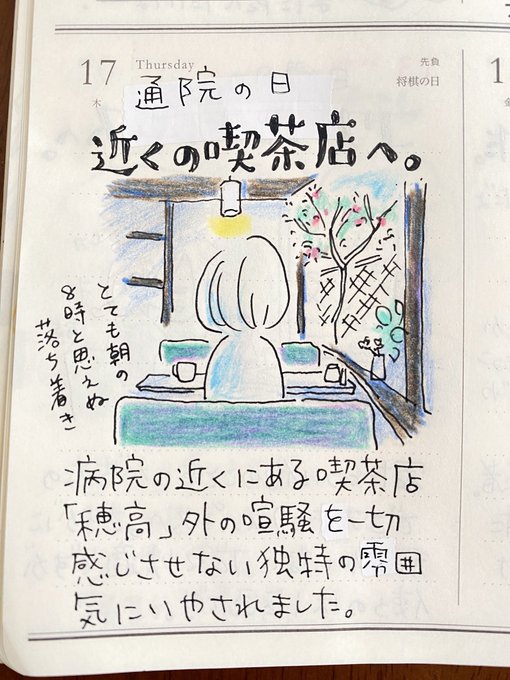 17
木
Thursday
先負
将棋の日
通院の日
近くの喫茶店へ。
とても朝の
8時と思えぬ
落ち着き
病院の近くにある喫茶店
「穂高」外の喧騒を一切
感じさせない独特の雰囲
気にいやされました。
1